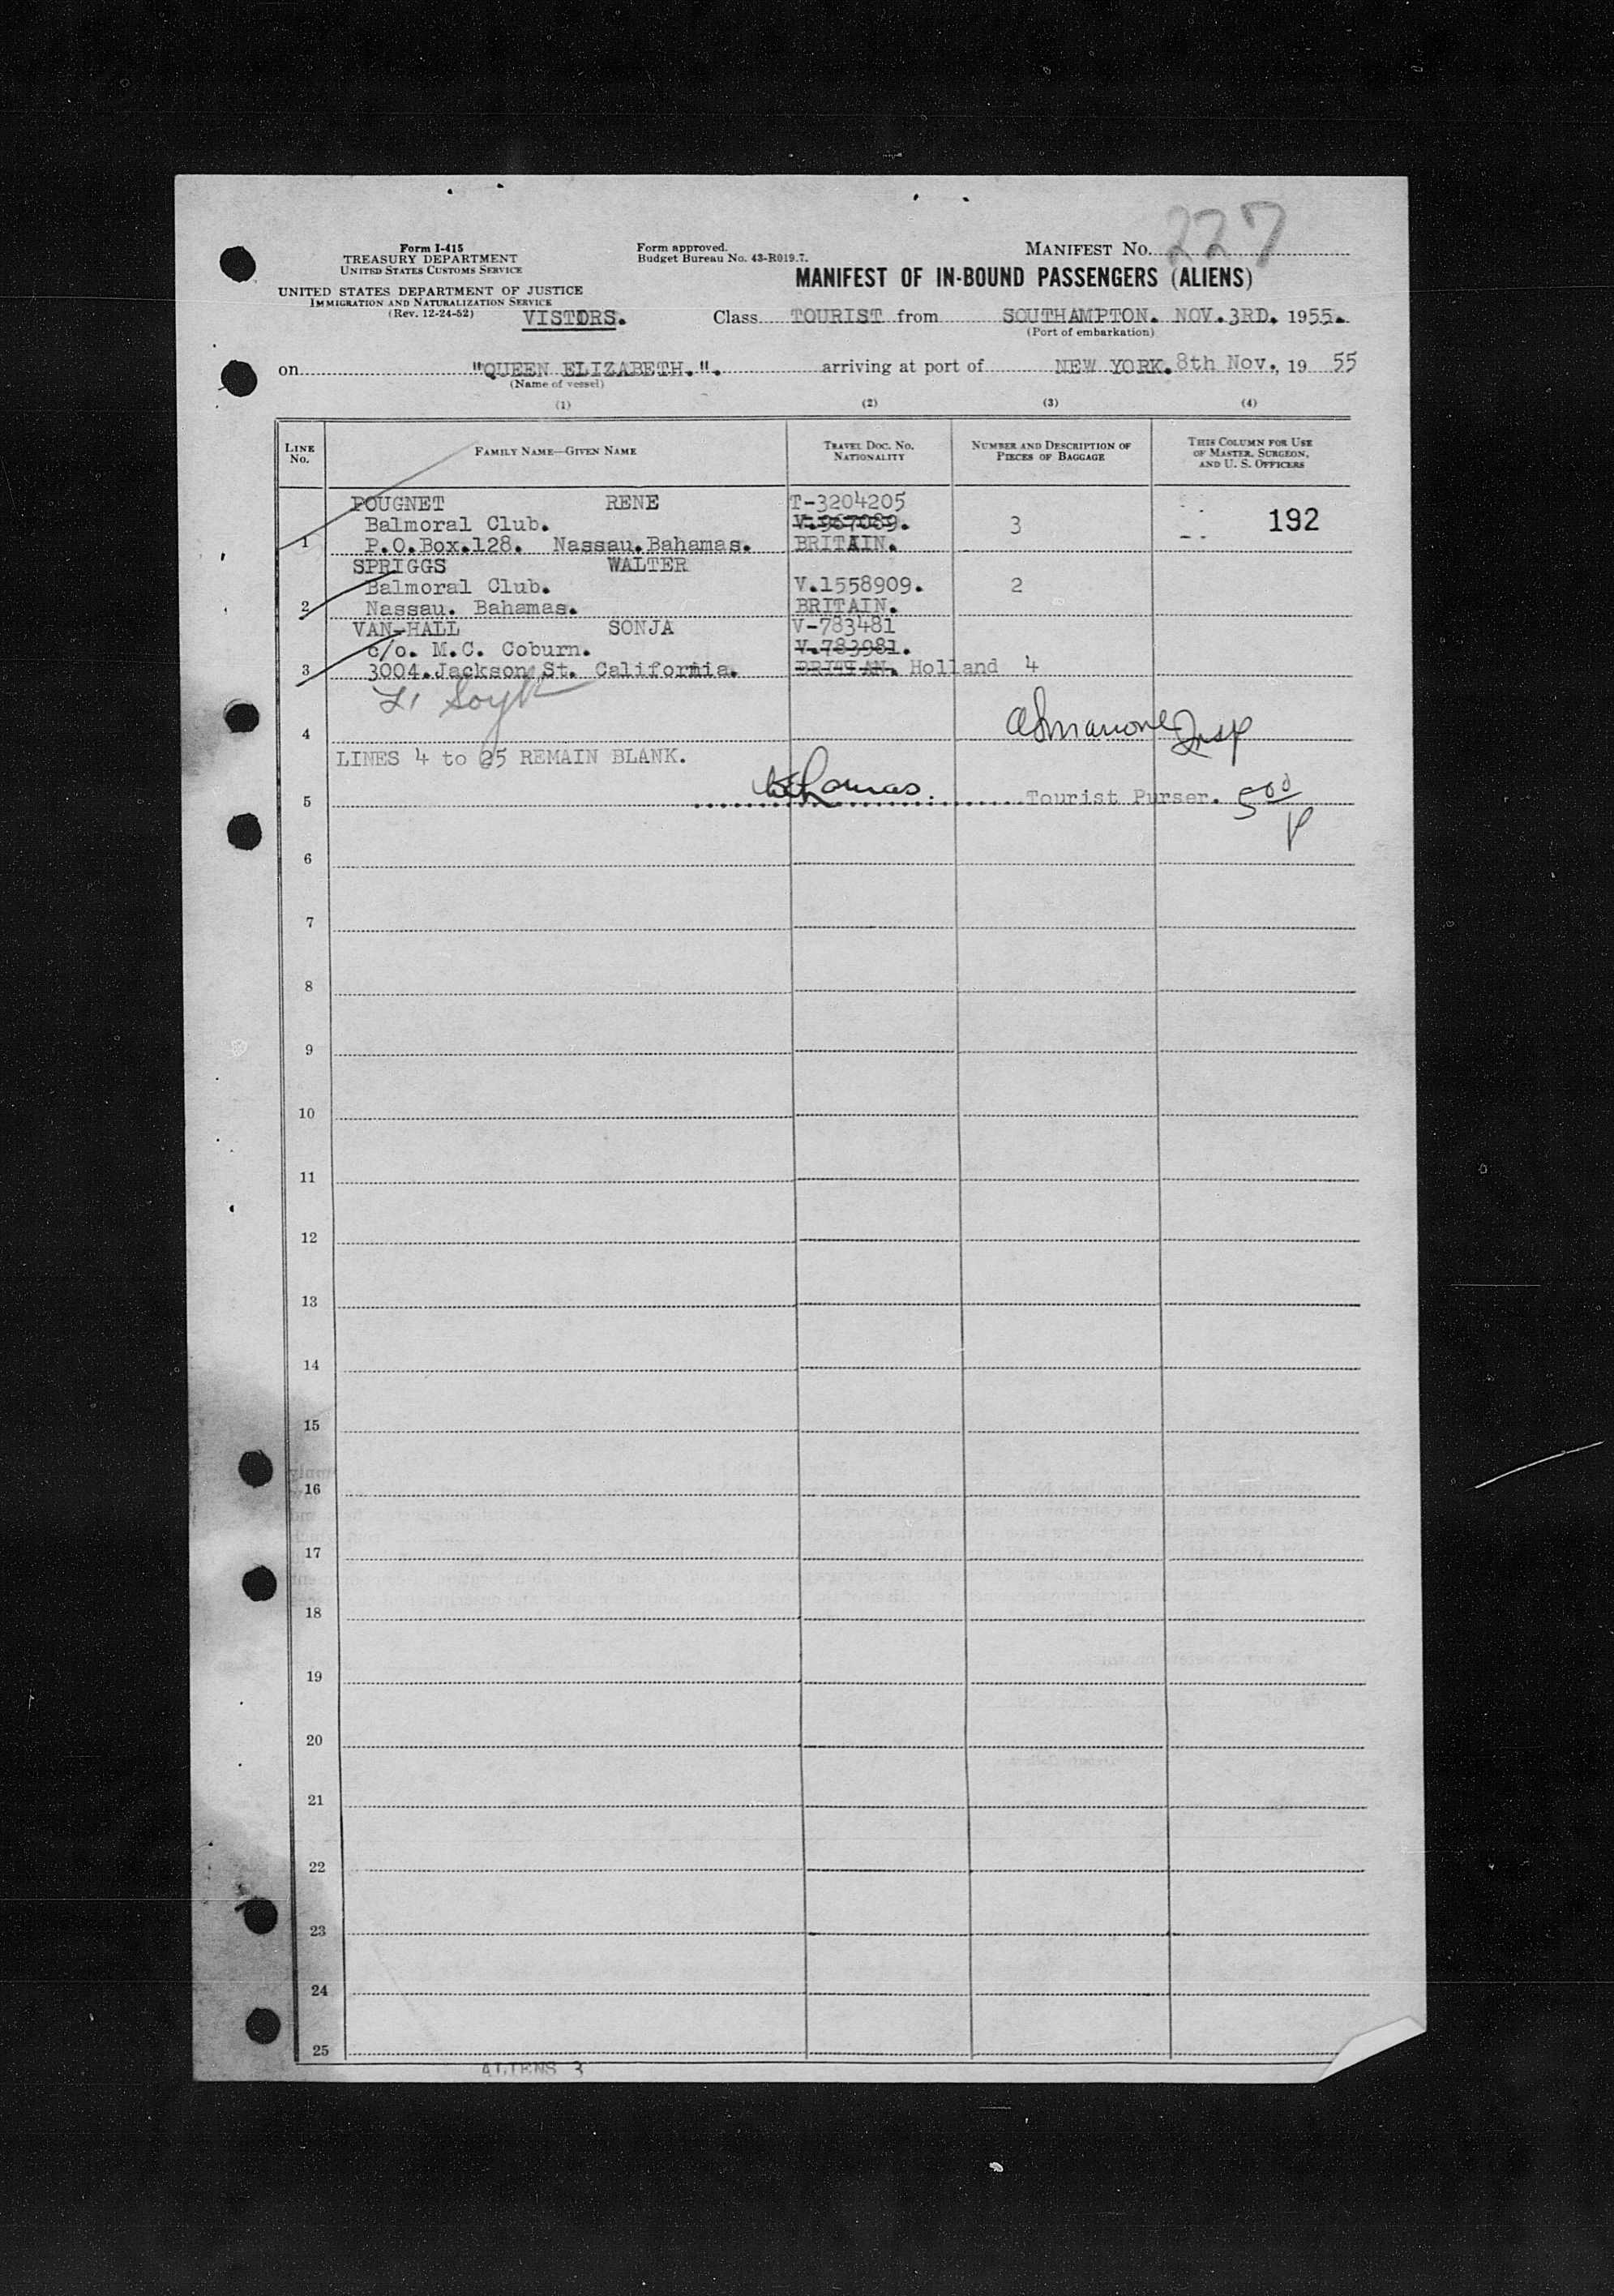 227
Form I-415
TREASURY DEPARTMENT
UNITED STATES CUSTOMS SERVICE
UNITED STATES DEPARTMENT OF JUSTICE
IMMIGRATION AND NATURALIZATION SERVICE
(Rev. 12-24-52)
Form approved.
Budget Bureau No. 43-R019.7.
MANIFEST No.
MANIFEST OF IN-BOUND PASSENGERS (ALIENS)
VISTORS. Class TOURIST from SOUTHAMPTON. NOV.3RD. 1955.
(Port of embarkation)
on "QUEEN ELIZABETH.". arriving at port of NEW YORK. 8th Nov., 19 55
(Name of vessel)
(1) (2) (3) (4)
LINE No. FAMILY NAME—GIVEN NAME TRAVEL DOC. NO. NATIONALITY NUMBER AND DESCRIPTION OF PIECES OF BAGGAGE THIS COLUMN FOR USE OF MASTER, SURGEON, AND U. S. OFFICERS
POUGNET RENE T-3204205
Balmoral Club. V.967089. 3 192
1 P.O.Box.128. Nassau.Bahamas. BRITAIN.
SPRIGGS WALTER
Balmoral Club. V.1558909. 2
2 Nassau. Bahamas. BRITAIN.
VAN-HALL SONJA V-783481
c/o. M.C. Coburn. V.783981.
3 3004.Jackson St. California. Holland 4
4
LINES 4 to 25 REMAIN BLANK.
5 Tourist Purser. 500
6
7
8
9
10
11
12
13
14
15
16
17
18
19
20
21
22
23
24
25
ALIENS 3